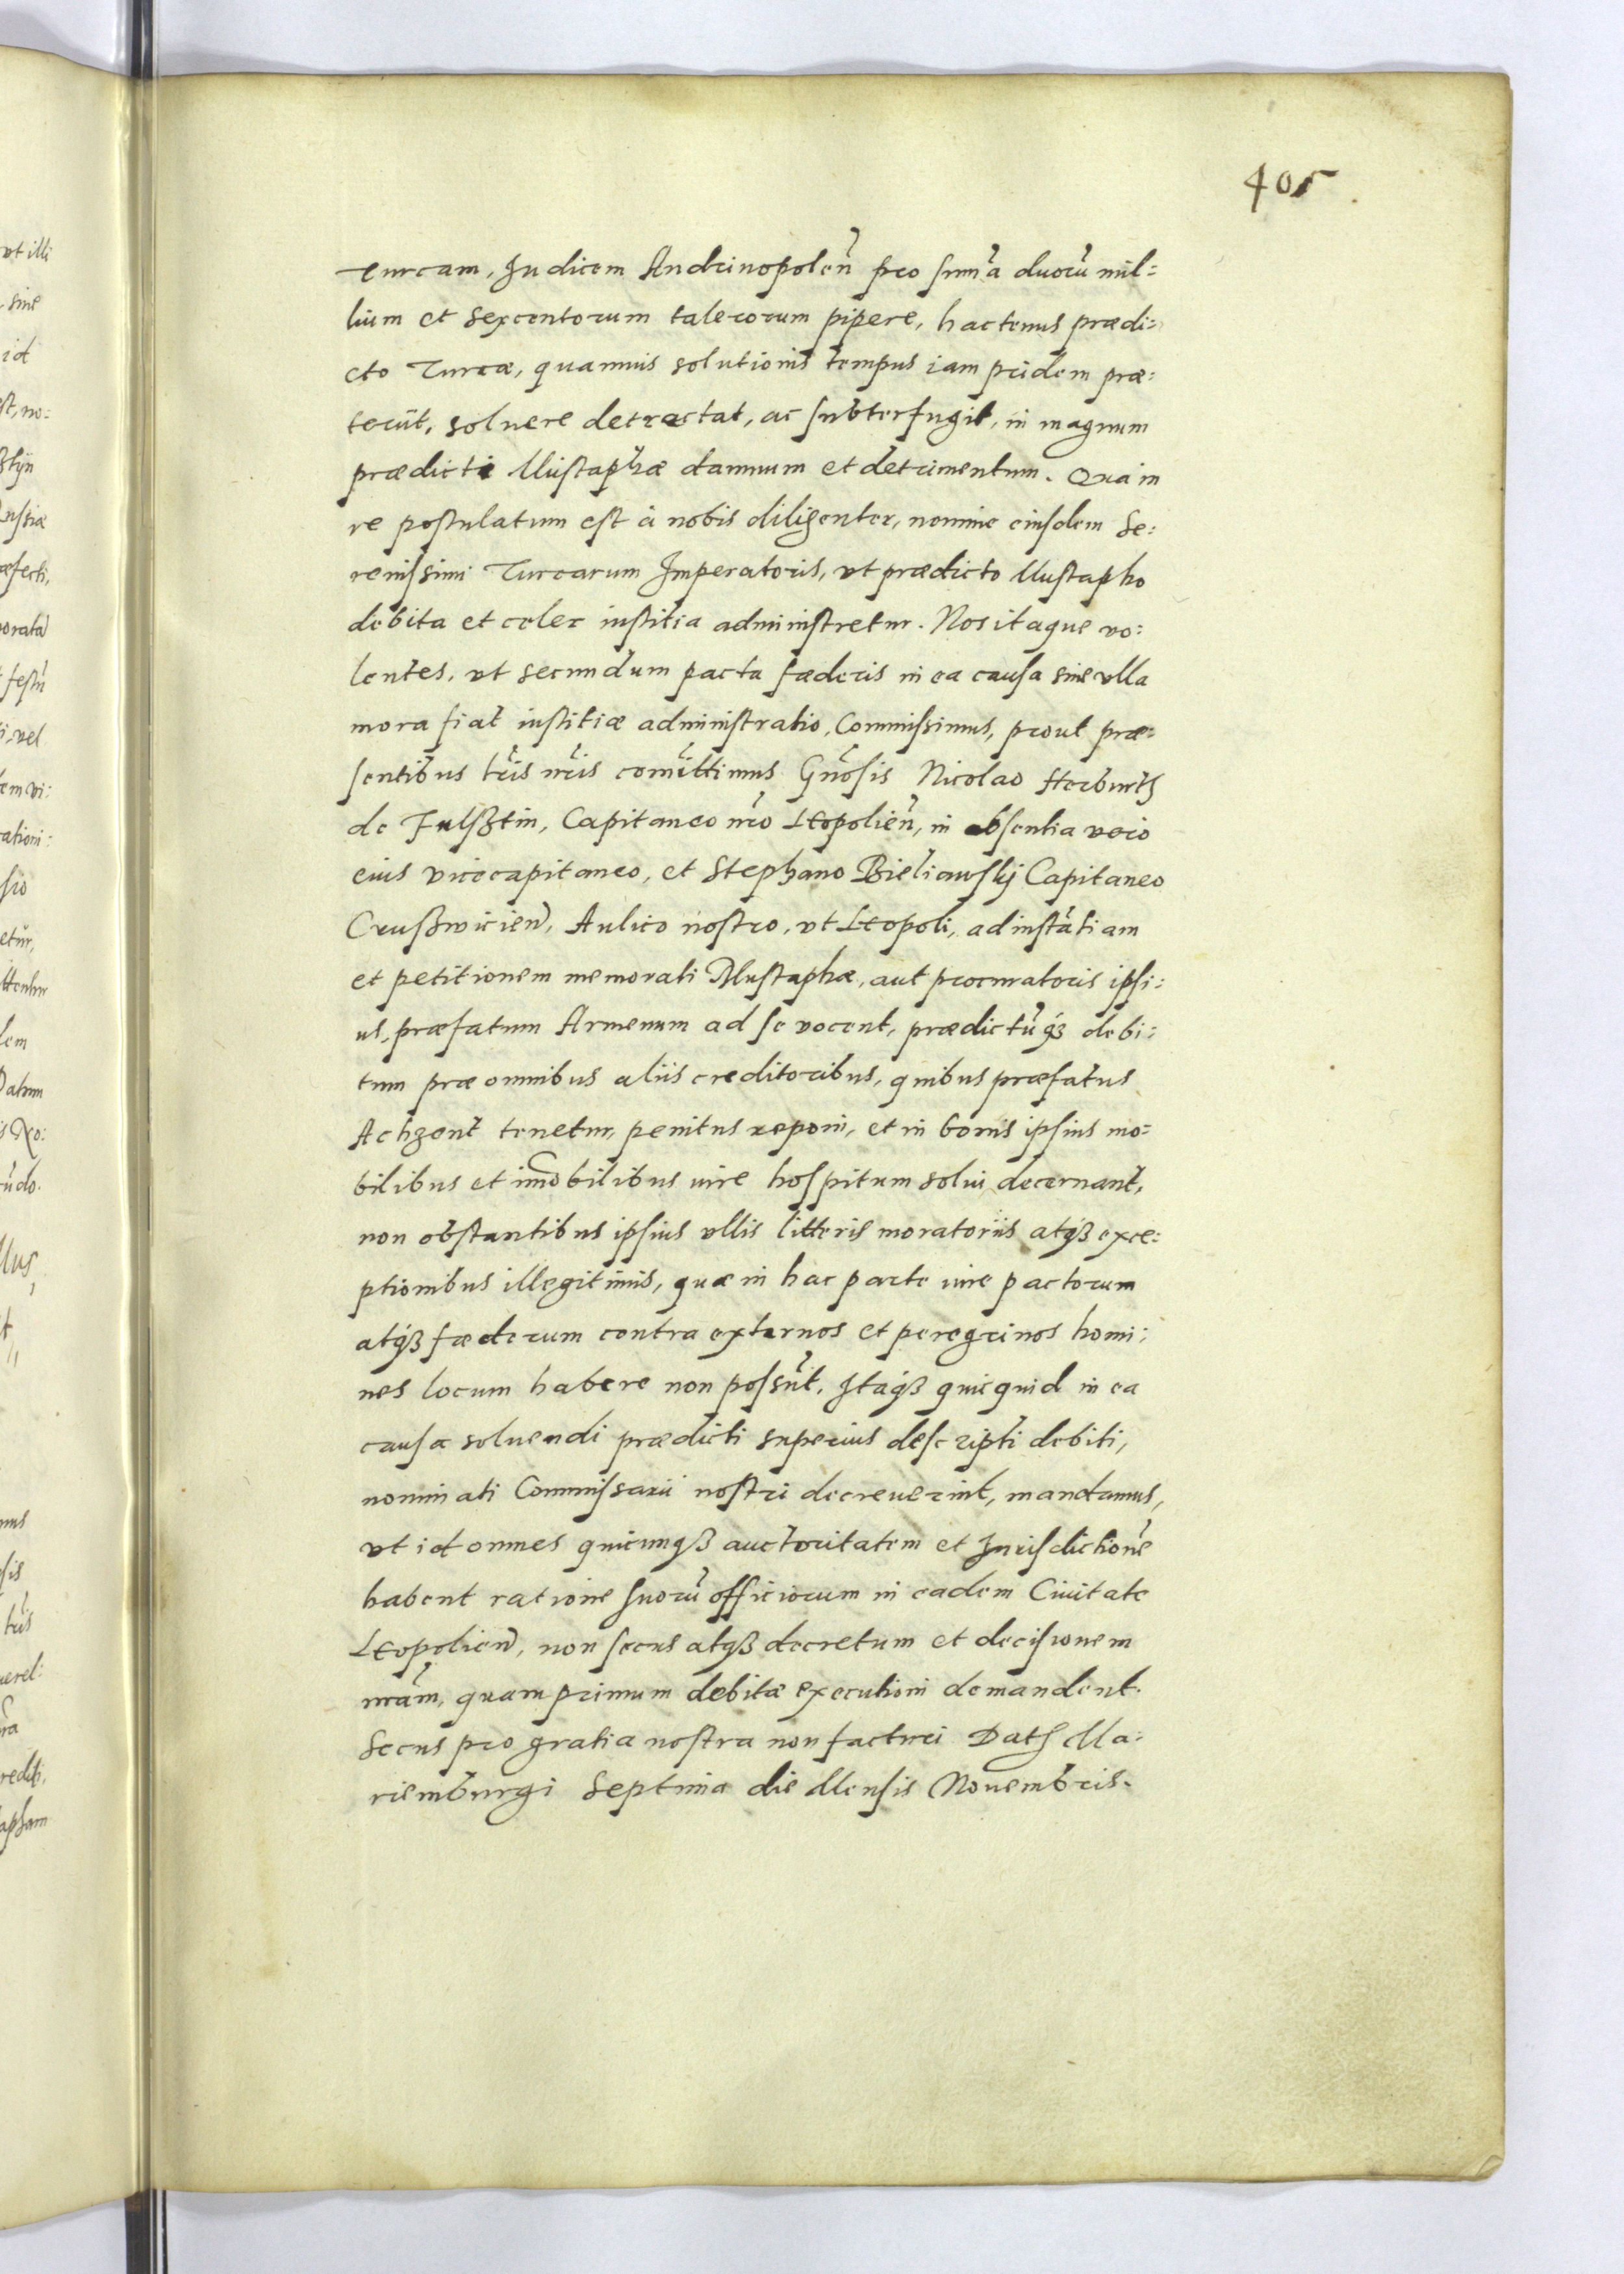 405
Turcam, Judicem Andrinopolen̄ pro sum̄a duorū mil=
lium et sexcentorum talerorum pipere, hactenus prædi=
cto Turcæ, quamuis solutionis tempus iam pridem præ=
teriit, soluere detractat, ac subterfugit, in magnum
prædicti Mustaphæ damnum et detrimentum. Qua in
re postulatum est à nobis diligenter, nomine eiusdem Se:
renissimi Turcarum Imperatoris, vt prædicto Mustapho
debita et celer iustitia administretur. Nos itaque vo:
lentes, vt secundum pacta fæderis in ea causa sine vlla
mora fiat iustitiæ administratio, Commissimus, prout præ=
sentibus lr̄is nr̄is comīttimus Gn̄osis Nicolao Herburth
de Fulsztin, Capitaneo nr̄o Leopolien̄, in absentia vero
eius vicecapitaneo, et Stephano Bieliawskj Capitaneo
Cruszwicien̄, Aulico nostro, vt Leopoli, ad instātiam
et petitionem memorati Mustaphæ, aut procuratoris ipsi:
us, præfatum Armenum ad se vocent, prædictūq3 debi:
tum præ omnibus aliis creditoribus, quibus præfatus
Achzent tenetur, penitus reponi, et in bonis ipsius mo=
bilibus et im̄obilibus iure hospitum solui decernant,
non obstantibus ipsius vllis litteris moratoriis atq3 exce:
ptionibus illegitimis, quæ in hac parte iure pactorum
atq3 fæderum contra externos et peregrinos homi:
nes locum habere non possūt. Itaq3 quicquid in ea
causa soluendi prædicti superius descripti debiti,
nominati Commissarii nostri decreuerint, mandamus,
vt id omnes quicunq3 auctoritatem et Jurisdictionē
habent ratione suorū officiorum in eadem Ciuitate
Leopolien̄, non secus atq3 decretum et decisionem
nr̄am, quam primum debitæ executioni demandent.
Secus pro gratia nostra non facturi Dat̄ Ma:
riemburgi Septima die Mensis Nouembris.